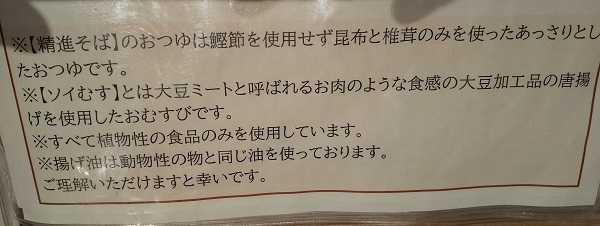 ※【精進そば】のおつゆは鰹節を使用せず昆布と椎茸のみを使ったあっさりとし
たおつゆです。
※【ソイむす】とは大豆ミートと呼ばれるお肉のような食感の大豆加工品の唐揚
げを使用したおむすびです。
※すべて植物性の食品のみを使用しています。
※揚げ油は動物性の物と同じ油を使っております。
ご理解いただけますと幸いです。